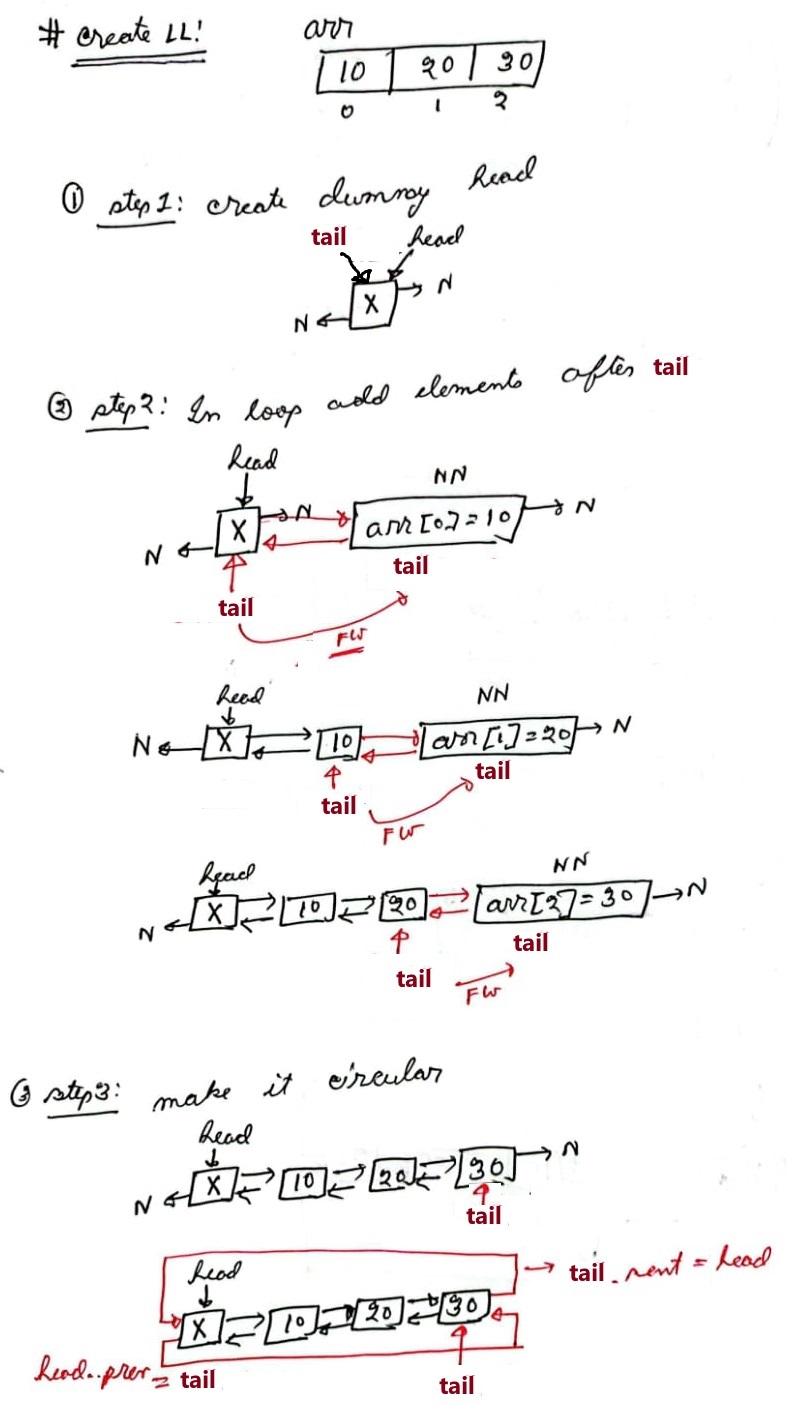 # Create LL!
arr
10 20 30
0 1 2
① step1: create dummy head
tail head
N X N
② step2: In loop add elements after tail
head
NN
N X N arr[0] = 10 N
tail
tail
FW
head NN
N X 10 arr[1] = 20 N
tail
tail
FW
head NN
N X 10 20 arr[2] = 30 N
tail
tail
FW
③ step3: make it circular
head
N X 10 20 30 N
tail
head
tail.next = head
X 10 20 30
head..prev = tail
tail